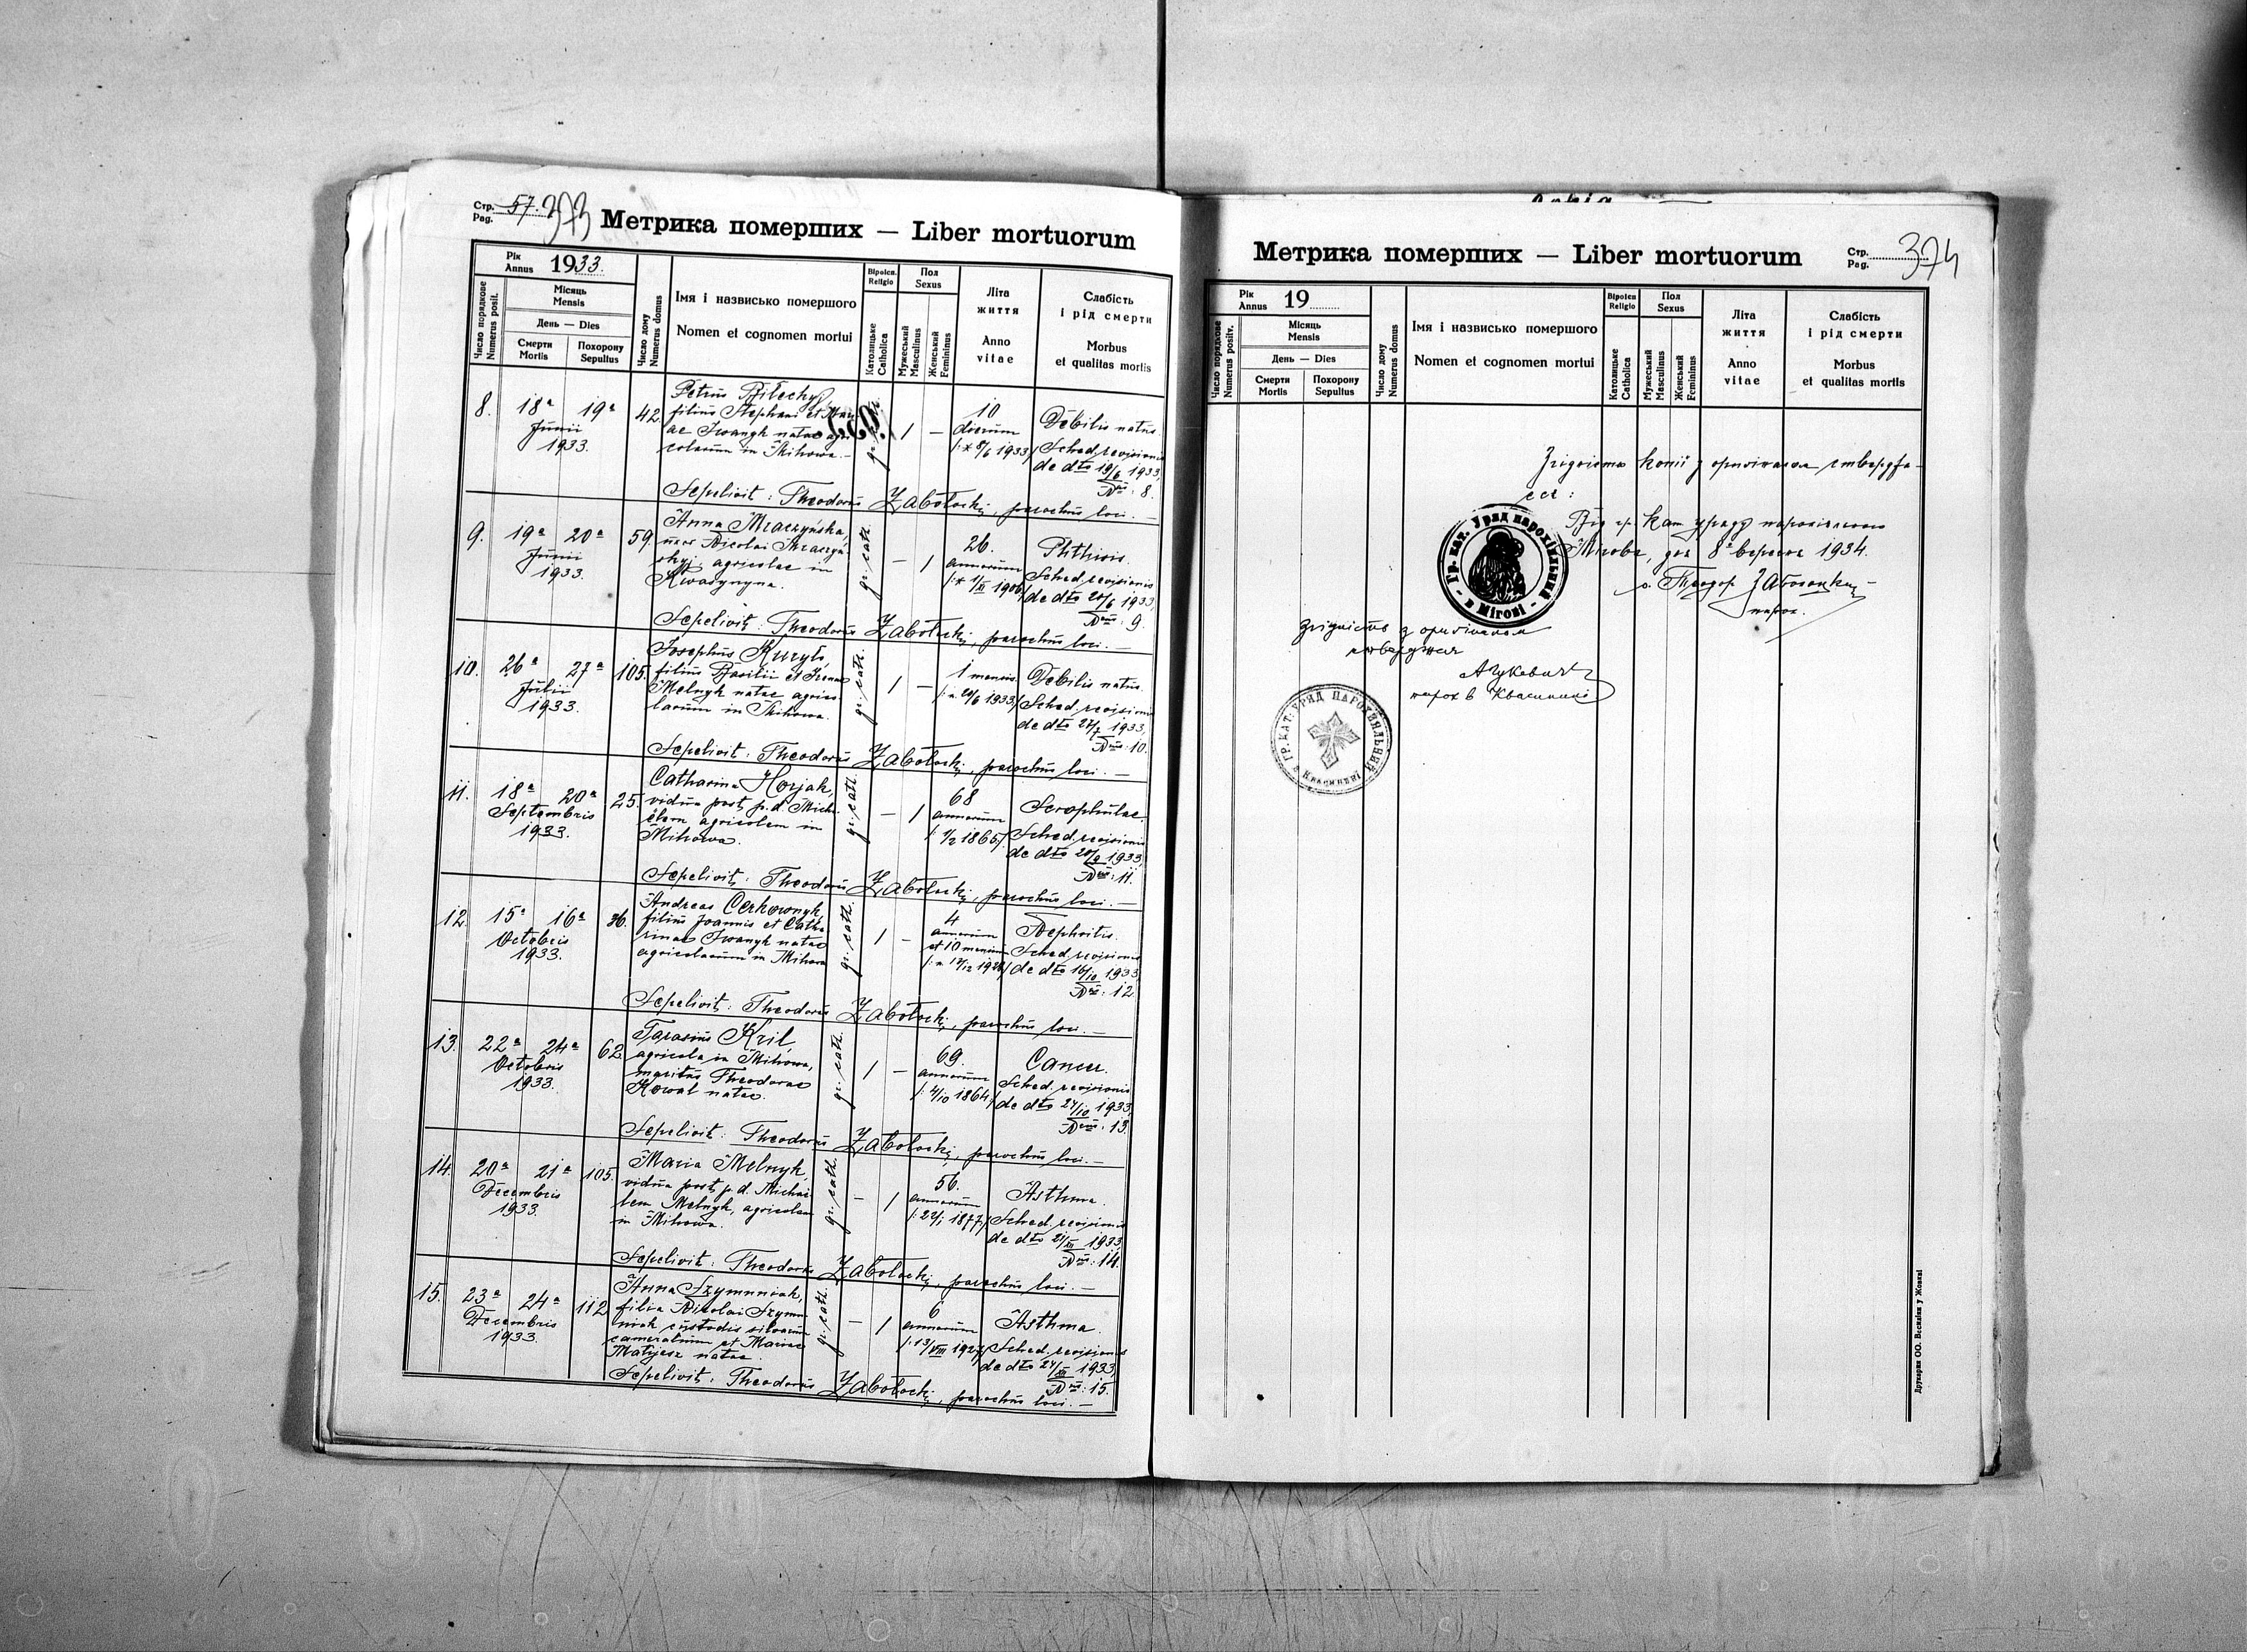 Стр. Pag. 57. 373
Метрика померших — Liber mortuorum
Рік Annus 1933.
Число порядкове
Numerus posit.
Місяць
Mensis
День — Dies
Смерти
Mortis
Похорону
Sepultus
Число дому
Numerus domus
Імя і назвисько помершого
Nomen et cognomen mortui
Віроісп.
Religio
Католицьке
Catholica
Пол
Sexus
Мужеський
Masculinus
Женський
Femininus
Літа
життя
Anno
vitae
Слабість
і рід смерти
Morbus
et qualitas mortis
8. 18ª 19ª Junii 1933. 42.
Petrus Bilechy,
filius Stephani et Mari-
ae Iwanyk natae agri-
colarum in Mihowa.—
gr. cath. 1 —
10
dierum
/:* 8/6 1933/
Debilis natus.
Sched. revisionis
de dto 19/6 1933,
Nrus: 8.
Sepelivit: Theodorus Zabołockij, parochus loci.—
9. 19ª 20ª Junii 1933. 59.
Anna Mraczyńska,
uxor Nicolai Mraczyń-
skyj, agricolae in
Kwasynyna.
gr. cath. — 1
26.
annorum
/:* 1/XI 1906/
Phthisis.
Sched. revisionis
de dto 20/6 1933,
Nrus: 9.
Sepelivit: Theodorus Zabołockij, parochus loci.—
10. 26ª 27ª Julii 1933. 105.
Josephus Kuryło,
filius Basilii et Irenae
Melnyk natae agrico-
larum in Mihowa.
gr. cath. 1 —
1 mensis
1933/
Debilis natus.
Sched. revisionis
de dto 27/7 1933,
Nrus: 10.
Sepelivit: Theodorus Zabołockij, parochus loci.—
11. 18ª 20ª Septembris 1933. 25.
Catharina Horjak,
vidua post p. d. Micha-
ëlem agricolam in
Mihowa.
gr. cath. — 1
68
annorum
/: 1/2 1865/
Scrophulae.
Sched. revisionis
de dto 20/9 1933,
Nrus: 11.
Sepelivit: Theodorus Zabołockij, parochus loci.—
12. 15ª 16ª Octobris 1933. 36.
Andreas Cerkownyk,
filius Joannis et Catha-
rinae Iwanyk natae
agricolarum in Mihowa
gr. cath. 1 —
4
annorum
et 10 mensium
Nephritis.
Sched. revisionis
de dto 16/10 1933,
Nrus: 12.
Sepelivit: Theodorus Zabołockij, parochus loci.—
13. 22ª 24ª Octobris 1933. 62.
Tarasius Kril,
agricola in Mihowa,
maritus Theodorae
Kowal natae.
gr. cath. 1 —
69.
annorum
/: 4/10 1864/
Cancer.
Sched. revisionis
de dto 24/10 1933,
Nrus: 13.
Sepelivit: Theodorus Zabołockij, parochus loci.—
14. 20ª 21ª Decembris 1933. 105.
Maria Melnyk,
vidua post p. d. Michaë-
lem Melnyk, agricolam
in Mihowa.
gr. cath. — 1
56.
annorum
1877/
Asthma.
Sched. revisionis
de dto 21/XII 1933,
Nrus: 14.
Sepelivit: Theodorus Zabołockij, parochus loci.—
15. 23ª 24ª Decembris 1933. 112.
Anna Szymuniak,
filia Nikolai Szymu-
niak custodis silvarum
cameralium et Mariae
Matyjesz natae.
gr. cath. — 1
6
annorum
/: 13/VIII 1927/
Asthma.
Sched. revisionis
de dto 24/XII 1933,
Nrus: 15.
Sepelivit: Theodorus Zabołockij, parochus loci.—
Метрика померших — Liber mortuorum
Стр. Pag. 374
Рік Annus 19
Число порядкове
Numerus positv.
Місяць
Mensis
День — Dies
Смерти
Mortis
Похорону
Sepultus
Число дому
Numerus domus
Імя і назвисько помершого
Nomen et cognomen mortui
Віроісп
Religio
Католицьке
Catholica
Пол
Sexus
Мужеський
Masculinus
Женський
Femininus
Літа
життя
Anno
vitae
Слабість
і рід смерти
Morbus
et qualitas mortis
Згідність копії з оригіналом стверджа-
єся:
Від гр. кат. уряду парохіяльного
Мігова, дня 8 вересня 1934.
о. Теодор Заболоцкий
парох.
Гр. кат. Уряд парохіяльний
в Мігові
Згідність з оригіналом
стверджая
парох в Квасинині
ГР. КАТ. УРЯД ПАРОХІЯЛЬНИЙ
в Квасинині
Друкарня ОО. Василіян у Жовкві